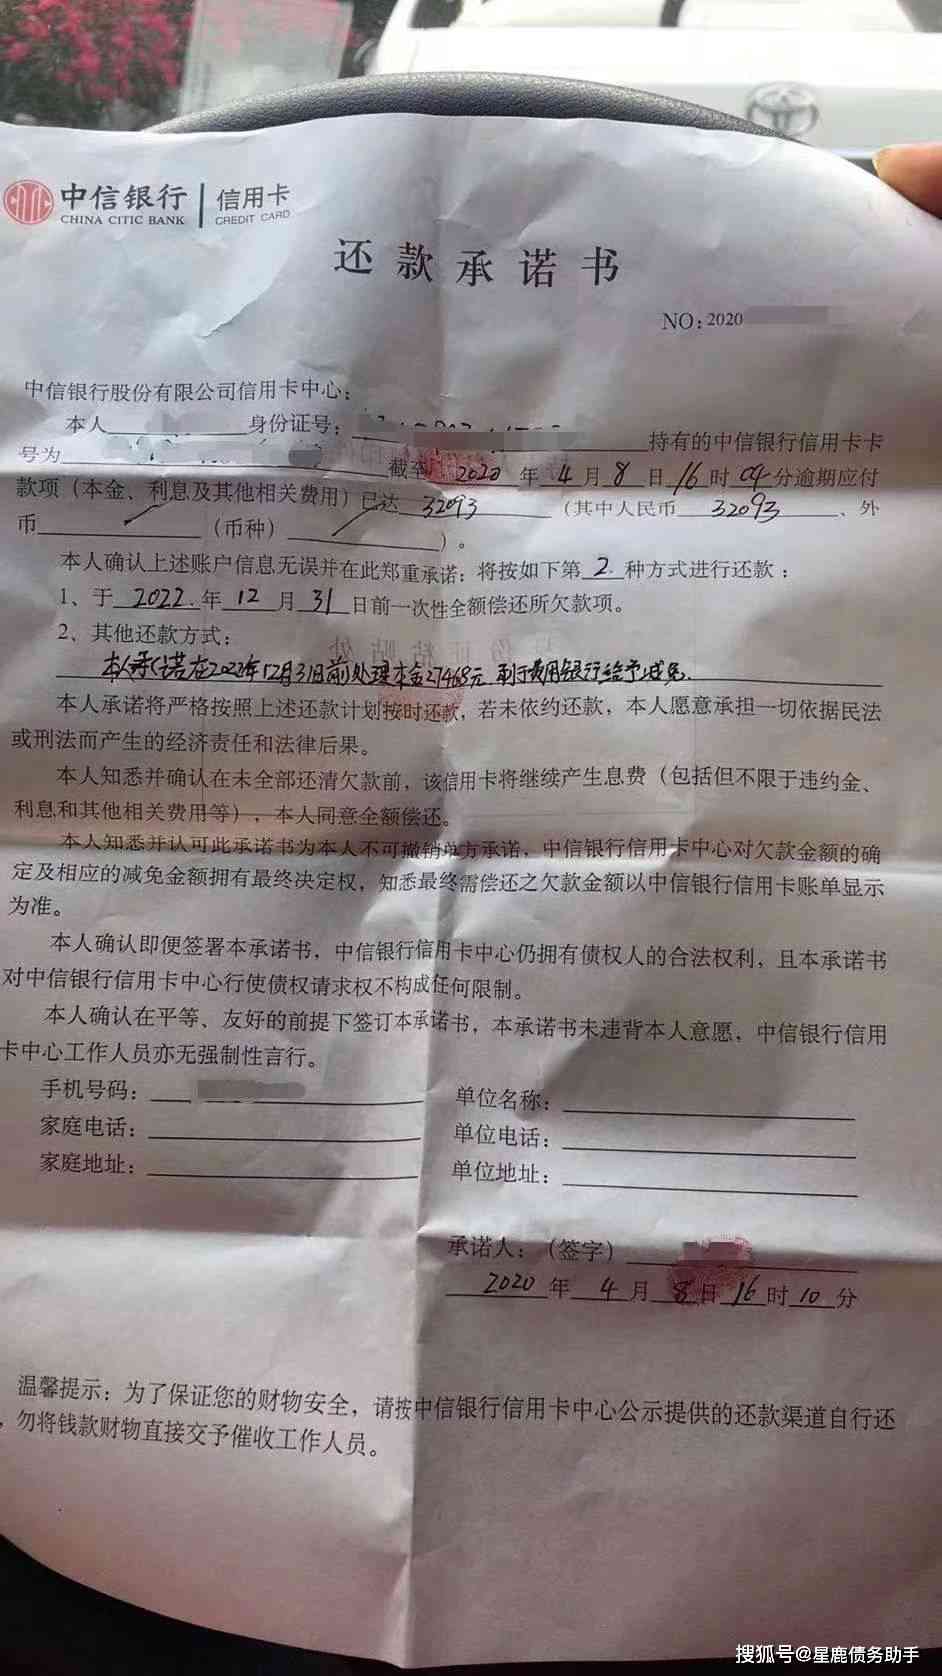 中信银行 信用卡
CHINA CITIC BANK CREDIT CARD
还款承诺书
NO:2020
中信银行股份有限公司信用卡中心:
本人 身份证号: 持有的中信银行信用卡卡
号为 截至 2020 年 4 月 8 日 16 时 04 分逾期应付
款项（本金、利息及其他相关费用）已达 32093 （其中人民币 32093 、外
币 （币种） ）。
本人确认上述账户信息无误并在此郑重承诺：将按如下第 2. 种方式进行还款：
1、于 2022. 年 12 月 31 日前一次性全额偿还所欠款项。
2、其他还款方式:
本人承诺在2022年12月31日前处理本金27468元 利于费用银行给予减免.
本人承诺将严格按照上述还款计划按时还款，若未依约还款，本人愿意承担一切依据民法
或刑法而产生的经济责任和法律后果。
本人知悉并确认在未全部还清欠款前，该信用卡将继续产生息费（包括但不限于违约金、
利息和其他相关费用等），本人同意全额偿还。
本人知悉并认可此承诺书为本人不可撤销单方承诺，中信银行信用卡中心对欠款金额的确
定及相应的减免金额拥有最终决定权，知悉最终需偿还之欠款金额以中信银行信用卡账单显示
为准。
本人确认即便签署本承诺书，中信银行信用卡中心仍拥有债权人的合法权利，且本承诺书
对中信银行信用卡中心行使债权请求权不构成任何限制。
本人确认在平等、友好的前提下签订本承诺书，本承诺书未违背本人意愿，中信银行信用
卡中心工作人员亦无强制性言行。
手机号码: 单位名称:
家庭电话: 单位电话:
家庭地址: 单位地址:
承诺人:（签字）
2020 年 4 月 8 日 16 时 10 分
温馨提示：为了保证您的财物安全，请按中信银行信用卡中心公示提供的还款渠道自行还
，勿将钱款财物直接交予催收工作人员。
搜狐号@星鹿债务助手